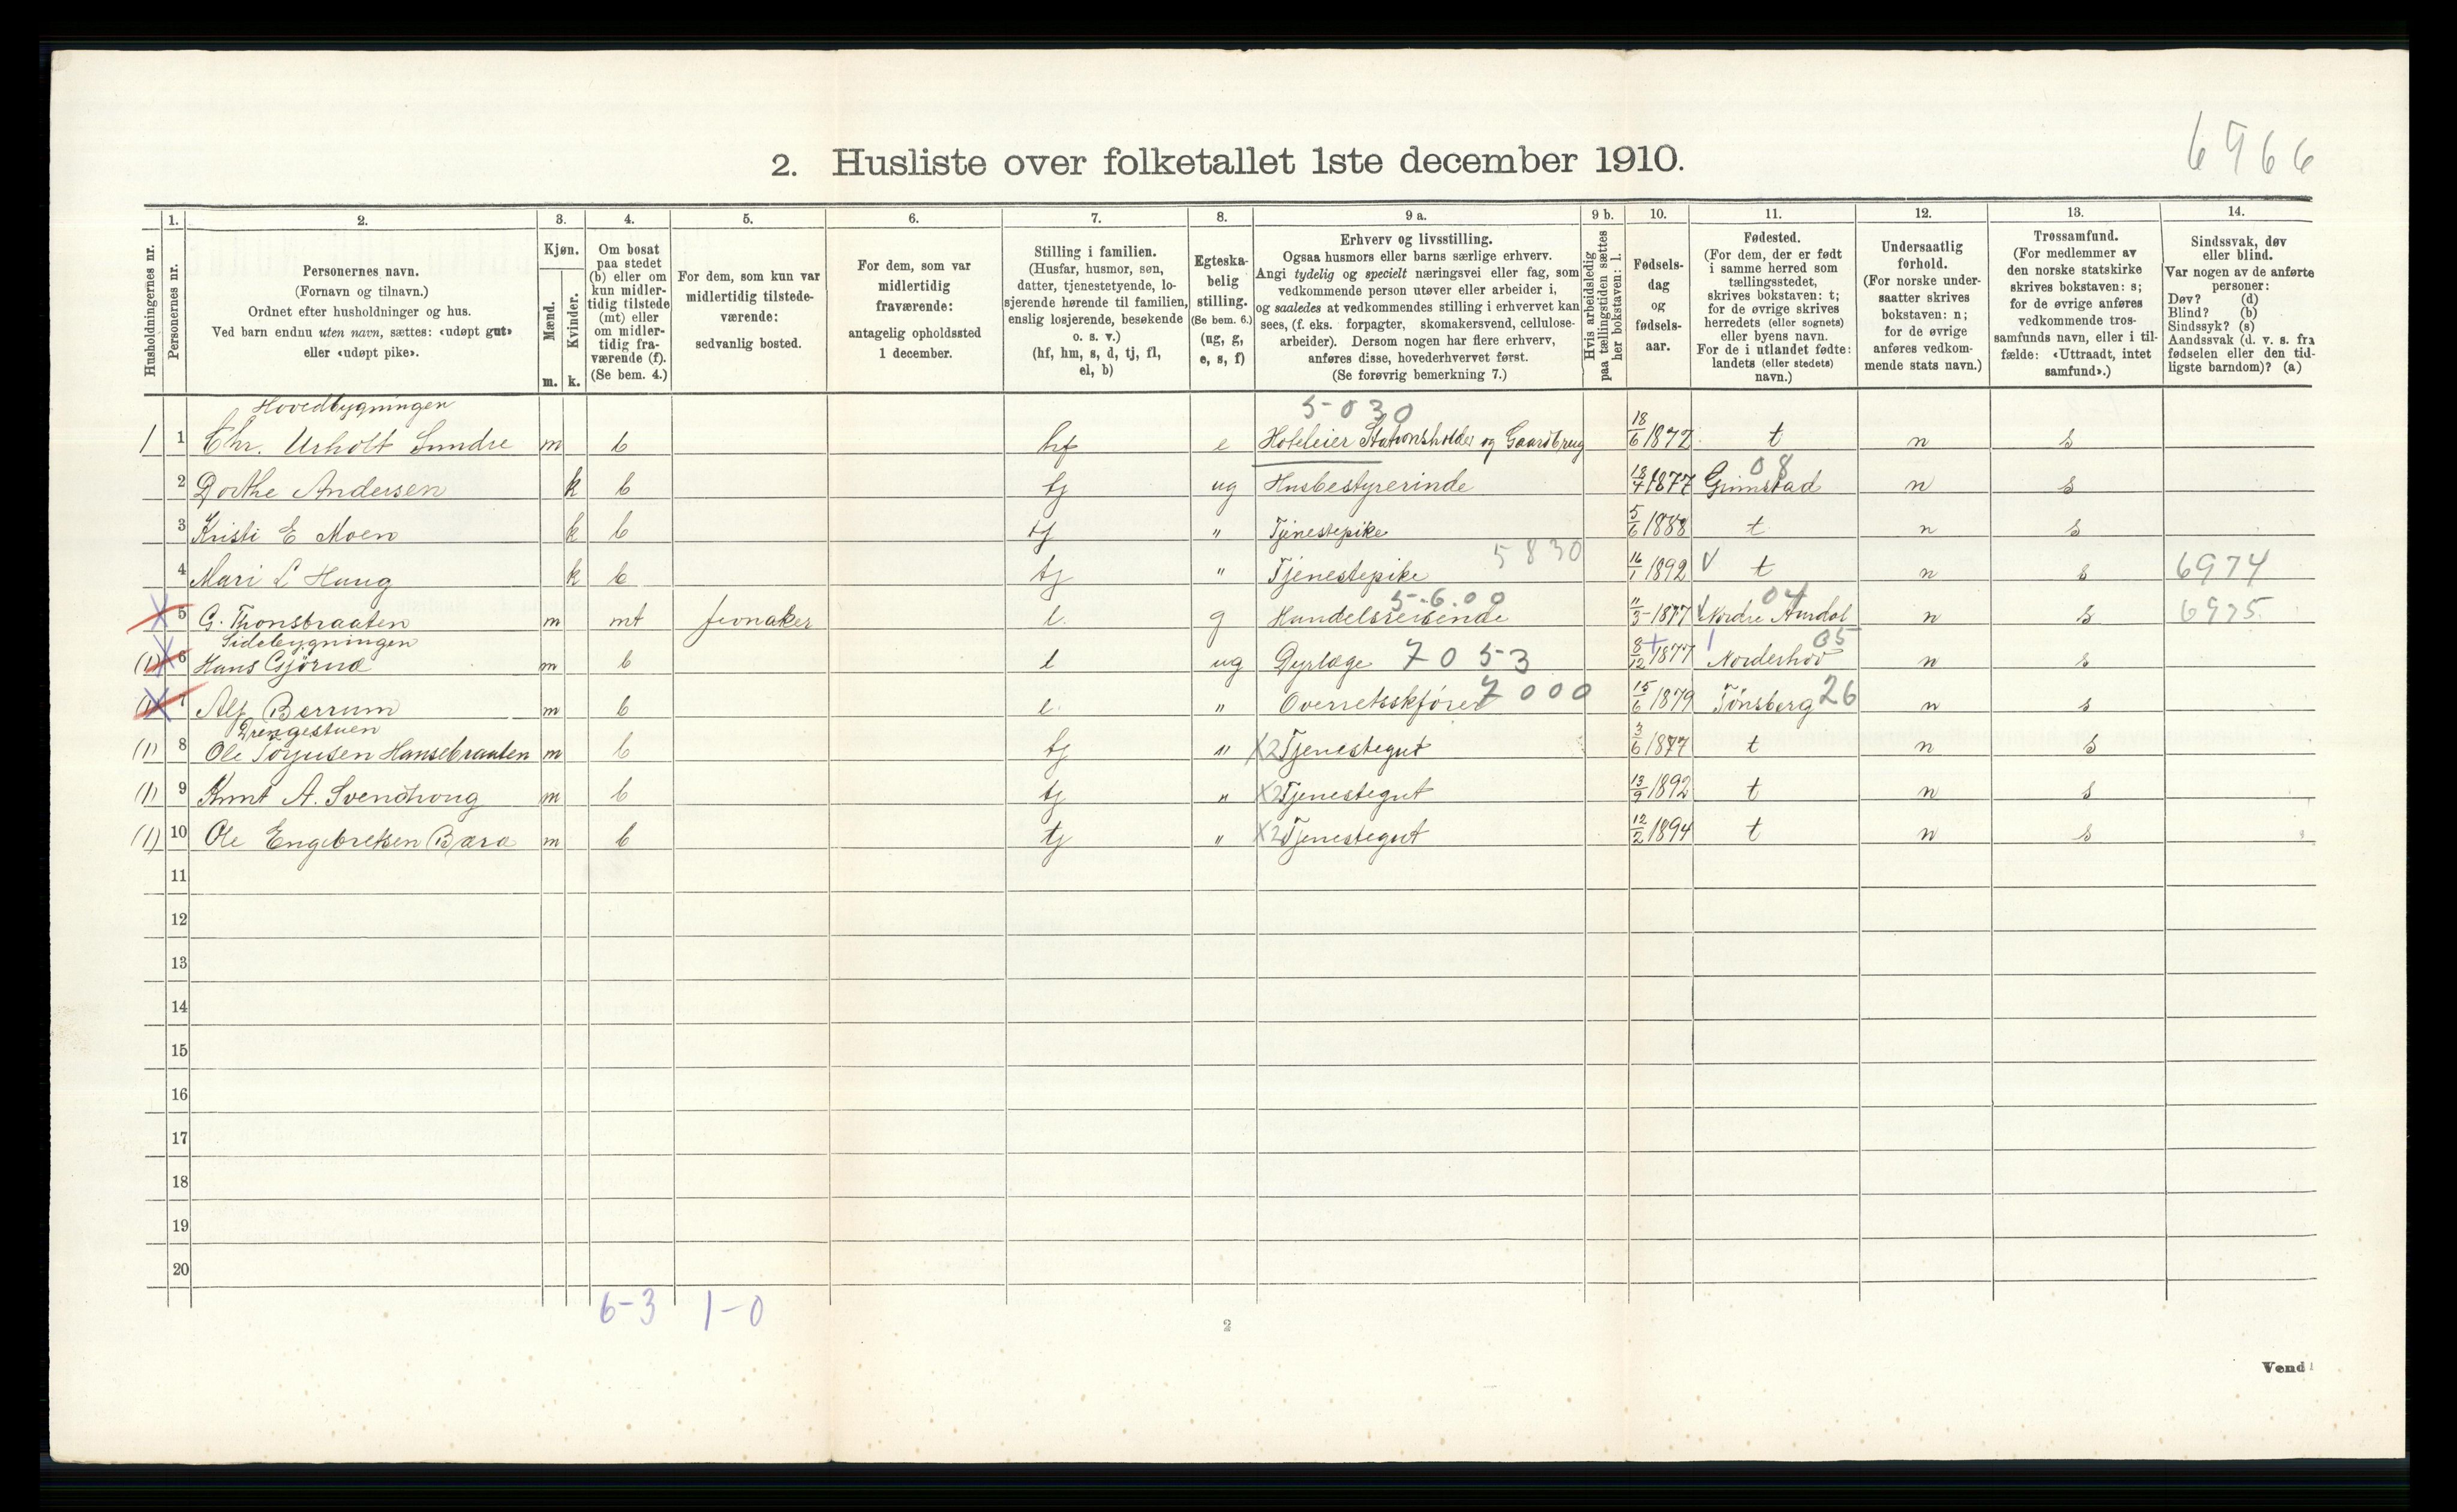 6966
2. Husliste over folketallet 1ste december 1910.
Husholdningernes nr.
1. Personernes nr.
2. Personernes navn.
(Fornavn og tilnavn.)
Ordnet efter husholdninger og hus.
Ved barn endnu uten navn, sættes: «udøpt gut»
eller «udøpt pike».
3. Kjøn.
Mænd. Kvinder.
m. k.
4. Om bosat
paa stedet
(b) eller om
kun midler-
tidig tilstede
(mt) eller
om midler-
tidig fra-
værende (f).
(Se bem. 4.)
5. For dem, som kun var
midlertidig tilstede-
værende:
sedvanlig bosted.
6. For dem, som var
midlertidig
fraværende:
antagelig opholdssted
1 december.
7. Stilling i familien.
(Husfar, husmor, søn,
datter, tjenestetyende, lo-
sjerende hørende til familien,
enslig losjerende, besøkende
o. s. v.)
(hf, hm, s, d, tj, fl,
el, b)
8. Egteska-
belig
stilling.
(Se bem. 6.)
(ug, g,
e, s, f)
9 a. Erhverv og livsstilling.
Ogsaa husmors eller barns særlige erhverv.
Angi tydelig og specielt næringsvei eller fag, som
vedkommende person utøver eller arbeider i,
og saaledes at vedkommendes stilling i erhvervet kan
sees, (f. eks. forpagter, skomakersvend, cellulose-
arbeider). Dersom nogen har flere erhverv,
anføres disse, hovederhvervet først.
(Se forøvrig bemerkning 7.)
9 b. Hvis arbeidsledig
paa tællingstiden sættes
her bokstaven: l.
10. Fødsels-
dag
og
fødsels-
aar.
11. Fødested.
(For dem, der er født
i samme herred som
tællingsstedet,
skrives bokstaven: t;
for de øvrige skrives
herredets (eller sognets)
eller byens navn.
For de i utlandet fødte:
landets (eller stedets)
navn.)
12. Undersaatlig
forhold.
(For norske under-
saatter skrives
bokstaven: n;
for de øvrige
anføres vedkom-
mende stats navn.)
13. Trossamfund.
(For medlemmer av
den norske statskirke
skrives bokstaven: s;
for de øvrige anføres
vedkommende tros-
samfunds navn, eller i til-
fælde: «Uttraadt, intet
samfund».)
14. Sindssvak, døv
eller blind.
Var nogen av de anførte
personer:
Døv? (d)
Blind? (b)
Sindssyk? (s)
Aandssvak (d. v. s. fra
fødselen eller den tid-
ligste barndom)? (a)
Hovedbygningen 5-030
1 1 Chr. Urholt Sundre m b hf e Hoteleier Stationsholder og Gaardbrug 18/6 1872 t n s
2 Dorthe Andersen k b tj ug Husbestyrerinde 18/4 1877 Grimstad 08 n s
3 Kristi E Moen k b tj " Tjenestepike 5/6 1888 t n s
4 Mari L Haug k b tj " Tjenestepike 5830 16/1 1892 t n s 6974
5 G. Thonsbraaten m mt Jevnaker l g Handelsreisende 5-6.00 11/3-1877 Nordre Aurdal 04 n s 6975
Sidebygningen
(1) 6 Hans Gjörnd m b l ug Dyrlæge 7053 8/12 1877 Norderhov 05 n s
(1) 7 Alf Barrum m b l " Overretssakfører 7000 15/6 1879 Tönsberg 26 n s
Drengestuen
(1) 8 Ole Torjusen Hansebraaten m b tj " X2 Tjenestegut 3/6 1877 t n s
(1) 9 Knut A. Svendhoug m b tj " X2 Tjenestegut 13/9 1892 t n s
(1) 10 Ole Engebretsen Bæra m b tj " X2 Tjenestegut 12/2 1894 t n s
11
12
13
14
15
16
17
18
19
20
6-3 1-0
2
Vend!